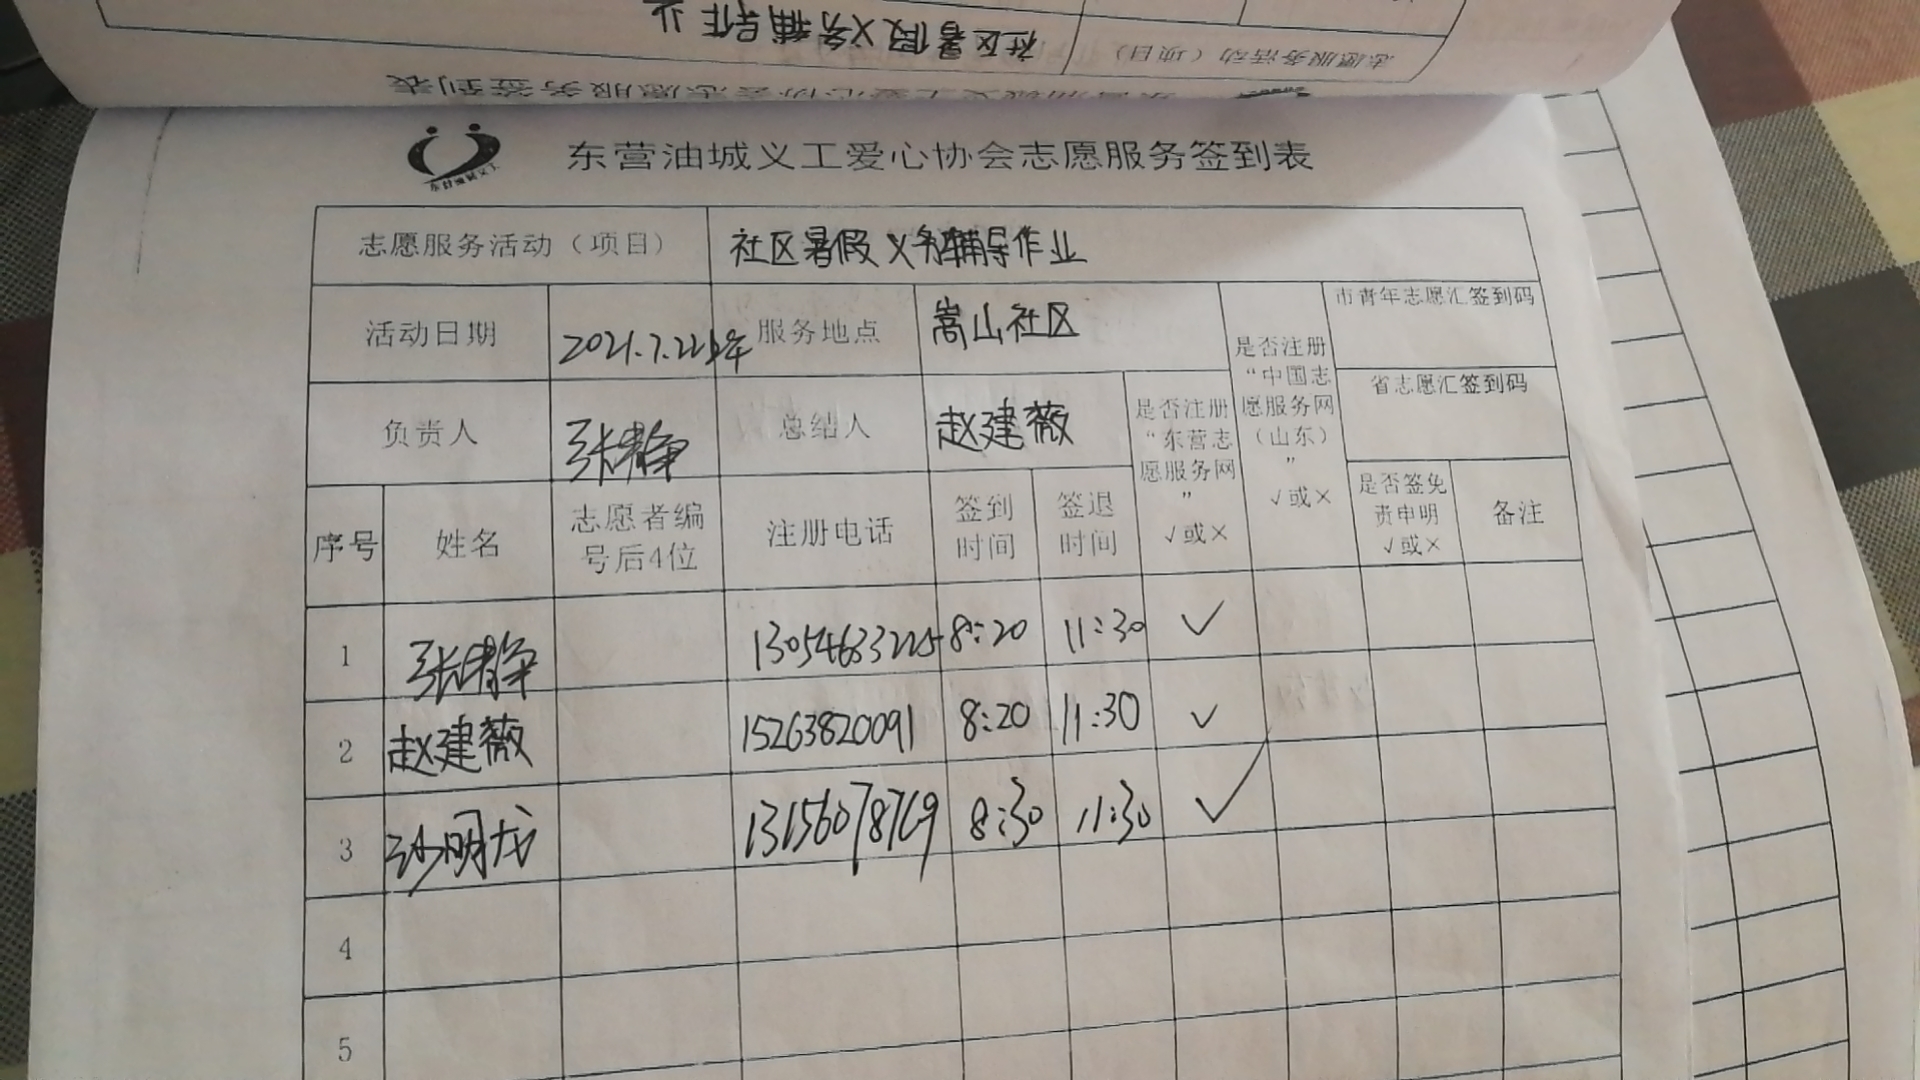 社区暑假义务辅导作业
志愿服务活动（项目）
东营油城义工爱心协会志愿服务签到表
东营油城义工
东营油城义工爱心协会志愿服务签到表
志愿服务活动（项目） 社区暑假义务辅导作业
活动日期 2021.7.22上午 服务地点 嵩山社区
是否注册“中国志愿服务网（山东）” √或×
市青年志愿汇签到码
省志愿汇签到码
负责人 张静 总结人 赵建薇
是否注册“东营志愿服务网” √或×
序号 姓名 志愿者编号后4位 注册电话 签到时间 签退时间 是否签免责申明 √或× 备注
1 张静 13054633225 8:20 11:30 √
2 赵建薇 15263820091 8:20 11:30 √
3 沙明龙 13156078769 8:30 11:30 √
4
5